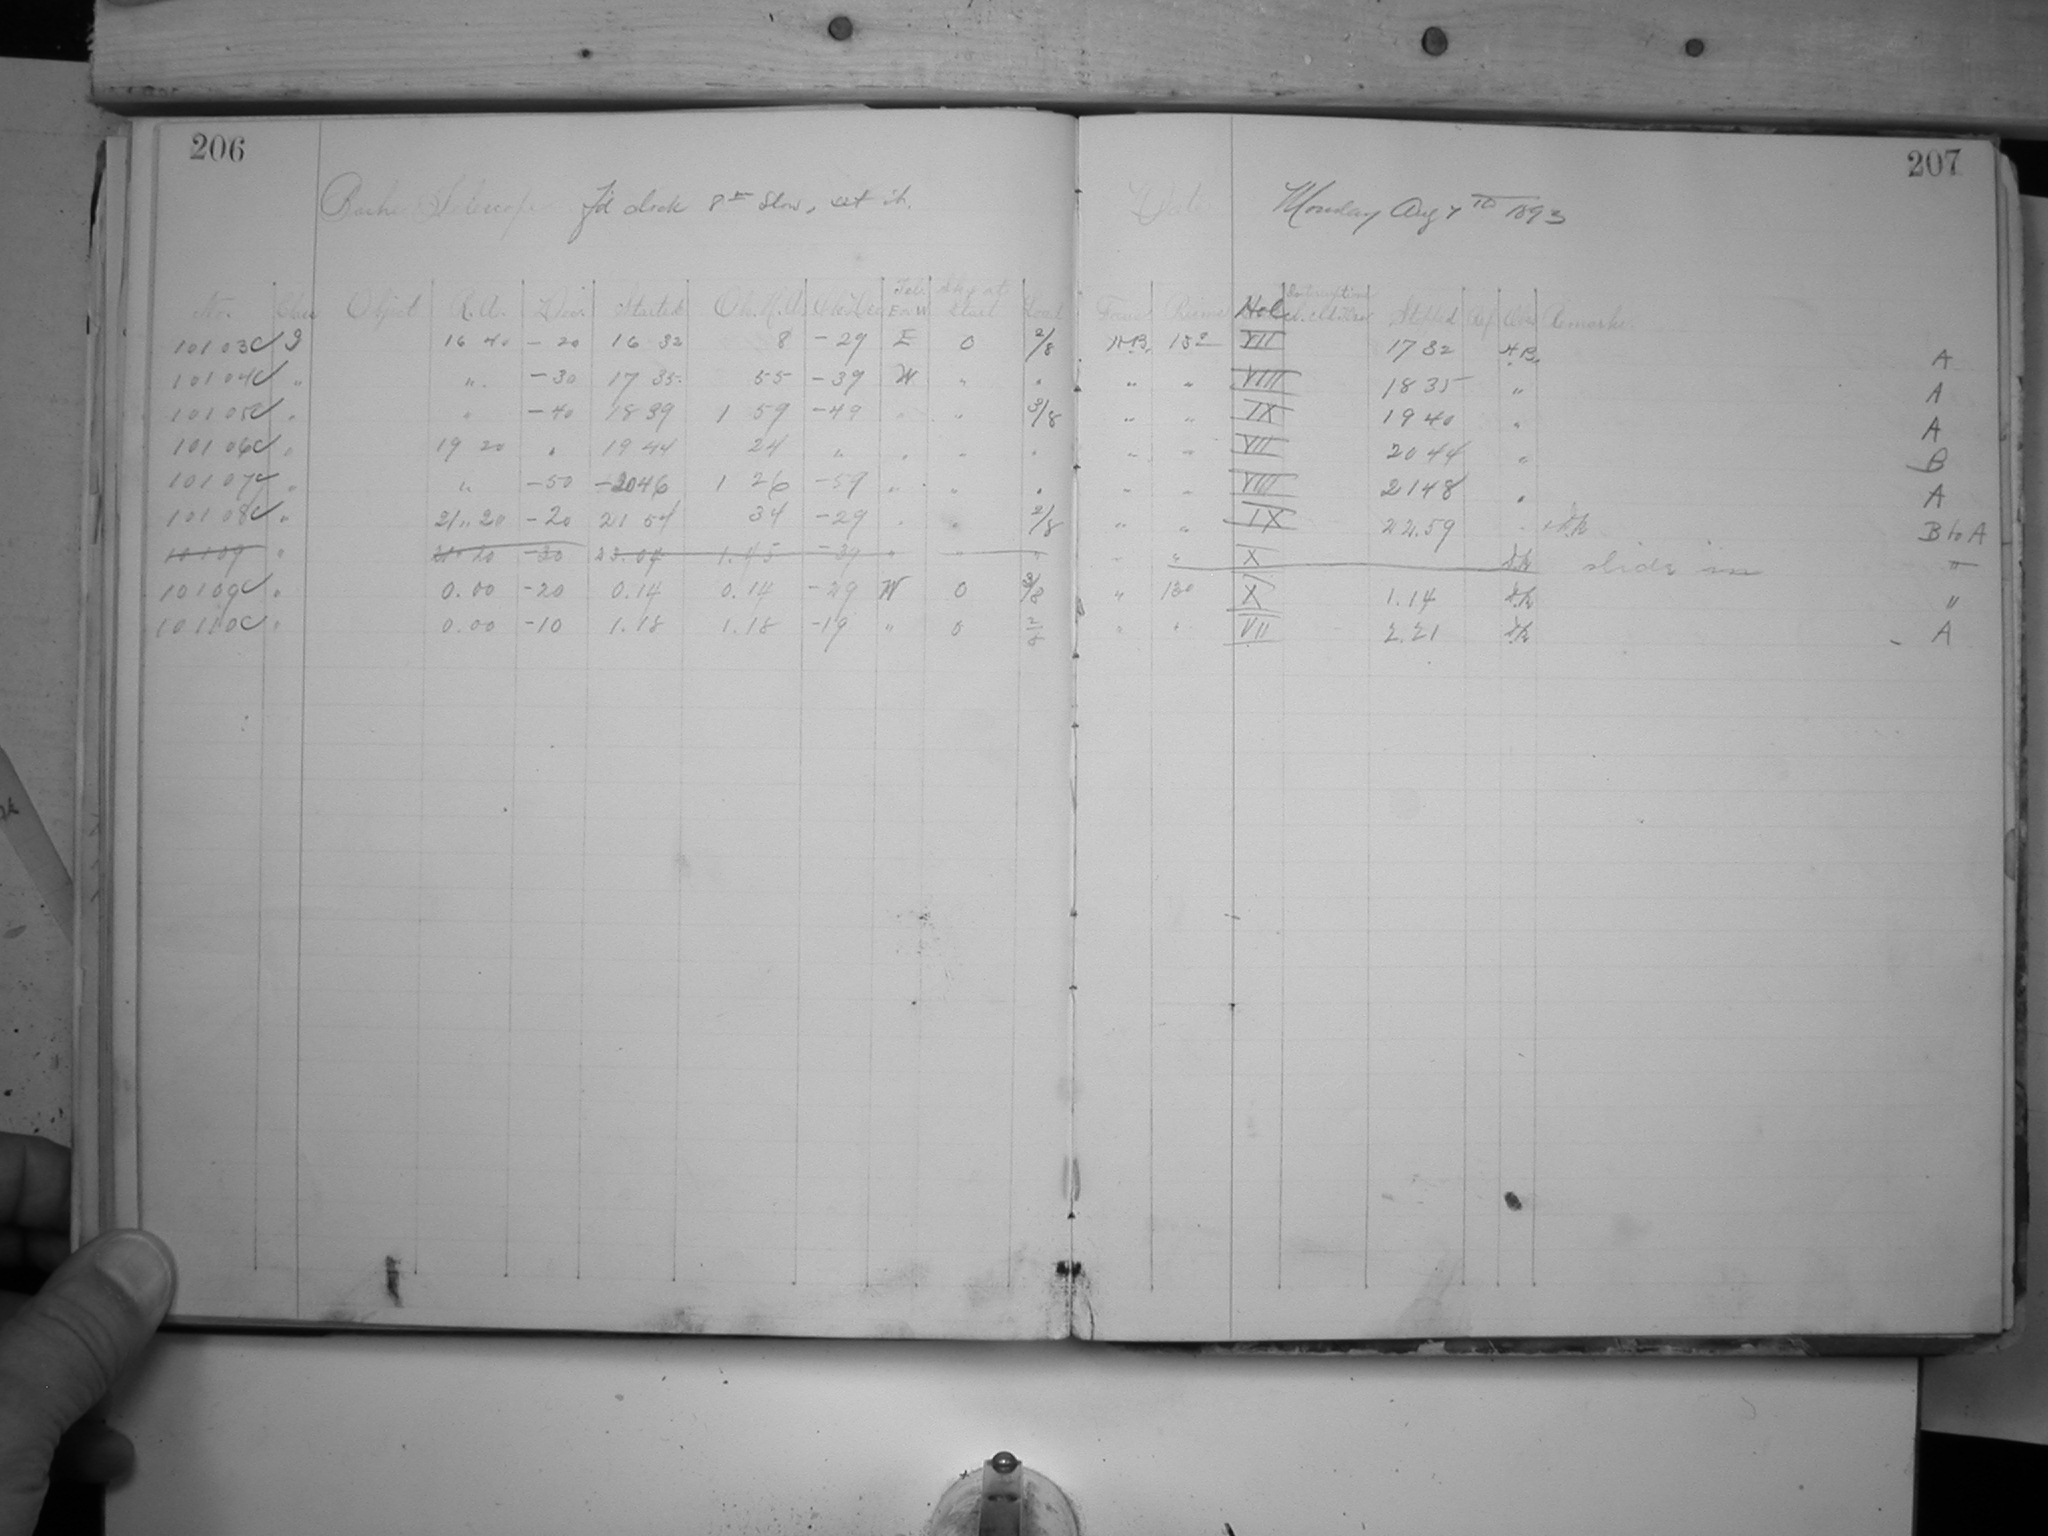 206 207
Bache Telescope f'd clock 8m slow, set it. Date Monday Aug 7th 1893
No. Class Object R.A. Dec. Started Ob. H.A. Tel. E or W Sky at start Focus Hol Interruptions Stopped Obs Remarks
10103c I 16 40 - 20 16 32 8 - 29 E 0 2/8 H.B. 132 VII 17 32 H.B. A
10104c " " - 30 17 35 55 - 39 W " " " " VIII 18 35 " A
10105c " " - 40 18 39 1 59 - 49 " " 3/8 " " IX 19 40 " A
10106c " 19 20 " 19 44 24 " " " " " " VII 20 44 " B
10107c " " - 50 - 2046 1 26 - 59 " " " " " VIII 2148 " A
10108c " 21 20 - 20 21 54 34 - 29 " " 2/8 " " IX 22.59 B to A
10109 " 21 20 - 30 23.04 1.45 - 39 " " " " " X slide in "
10109c " 0.00 - 20 0.14 0.14 - 29 W 0 3/8 " 130 X 1.14 "
10110c " 0.00 - 10 1.18 1.18 - 19 " 0 2/8 " " VII 2.21 A